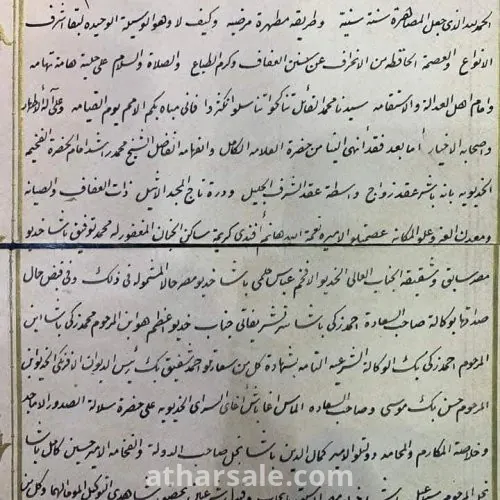 الحمد لله الذى جعل المصاهرة سنة سنية وطريقة مطهرة مرضية وكيف لا وهو الوسيلة الوحيدة لبقا أشرف
الانواع والعصمة الحافظة من الانحراف عن سنن العفاف وكرم الطباع والصلاة والسلام على حلية هامة تهامه
وامام اهل العدالة والاستقامه سيدنا محمد القائل تناكحوا تناسلوا تكثروا فانى مباه بكم الامم يوم القيامه وعلى آله الاطهار
وصحابه الاخيار أما بعد فقد أنهى الينا من حضرة العلامه الكامل والفهامه الفاضل الشيخ محمد راشد امام الحضرة الفخيمه
الخديويه بانه باشر عقد زواج واسطة عقد الشرف الجليل ودرة تاج المجد الاثيل ذات العفاف والصيانه
ومعدن العز وعلو المكانه عصمتلو الاميره نعمة الله هانم أفندى كريمة ساكن الجنان المغفور له محمد توفيق باشا خديو
مصر سابق وشقيقة الجناب العالى الخديو الافخم عباس حلمى باشا خديو مصر حالا المشموله فى ذلك وفى قبض حال
صداقها بوكالة صاحب السعادة احمد زكى باشا سر تشريفاتى جناب خديو معظم هو ابن المرحوم محمد زكى باشا ابن
المرحوم احمد زكى بك الوكالة الشرعيه التامه بشهادة كل من سعادتلو احمد شفيق بك رئيس الديوان الافرنكى الخديوى ابن
المرحوم حسن بك موسى وصاحب السعاده الماس اغا باش أغاى السراى الخديويه على حضرة سلالة الصدور الاماجد
وخلاصة المكارم والمحامد دولتلو الامير كمال الدين باشا نجل صاحب الدولة والفخامه الامير حسين كامل باشا
atharsale.com